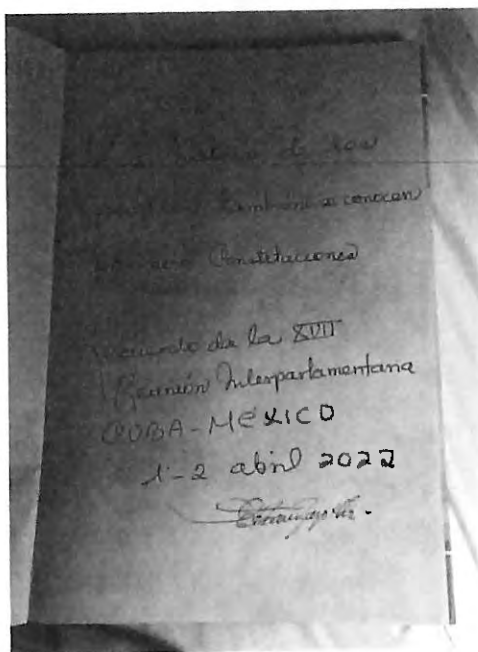 La historia de los
también se conocen
por sus Constituciones
Recuerdo de la XVII
Reunión Interparlamentaria
CUBA-MÉXICO
1-2 abril 2022